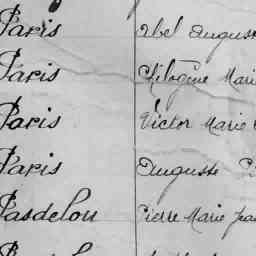 Paris Abel Auguste
Paris Philogine Marie
Paris Victor Marie
Paris Auguste
Pasdelou Pierre Marie Jea